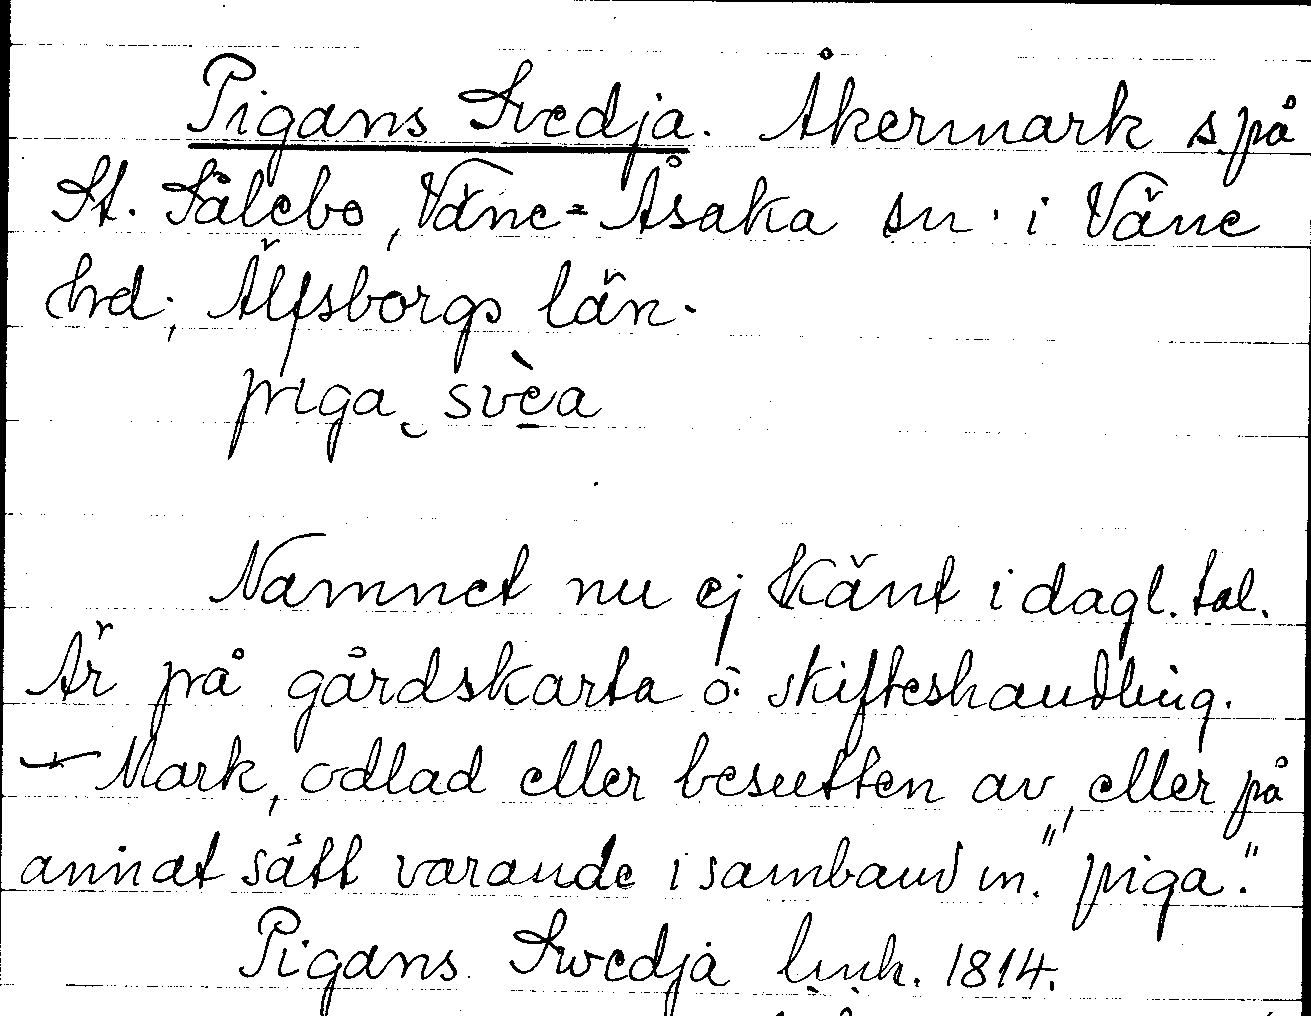 Pigans Svedja. Åkermark s. på
St. Sålebo, Väne-Åsaka sn. i Väne
hrd; Älfsborgs län.
piga svèa
Namnet nu ej känt i dagl. tal.
Är på gårdskarta o. skifteshandling.
— Mark, odlad eller besutten av, eller på
annat sätt varande i samband m. "piga".
Pigans Swedja 1814.